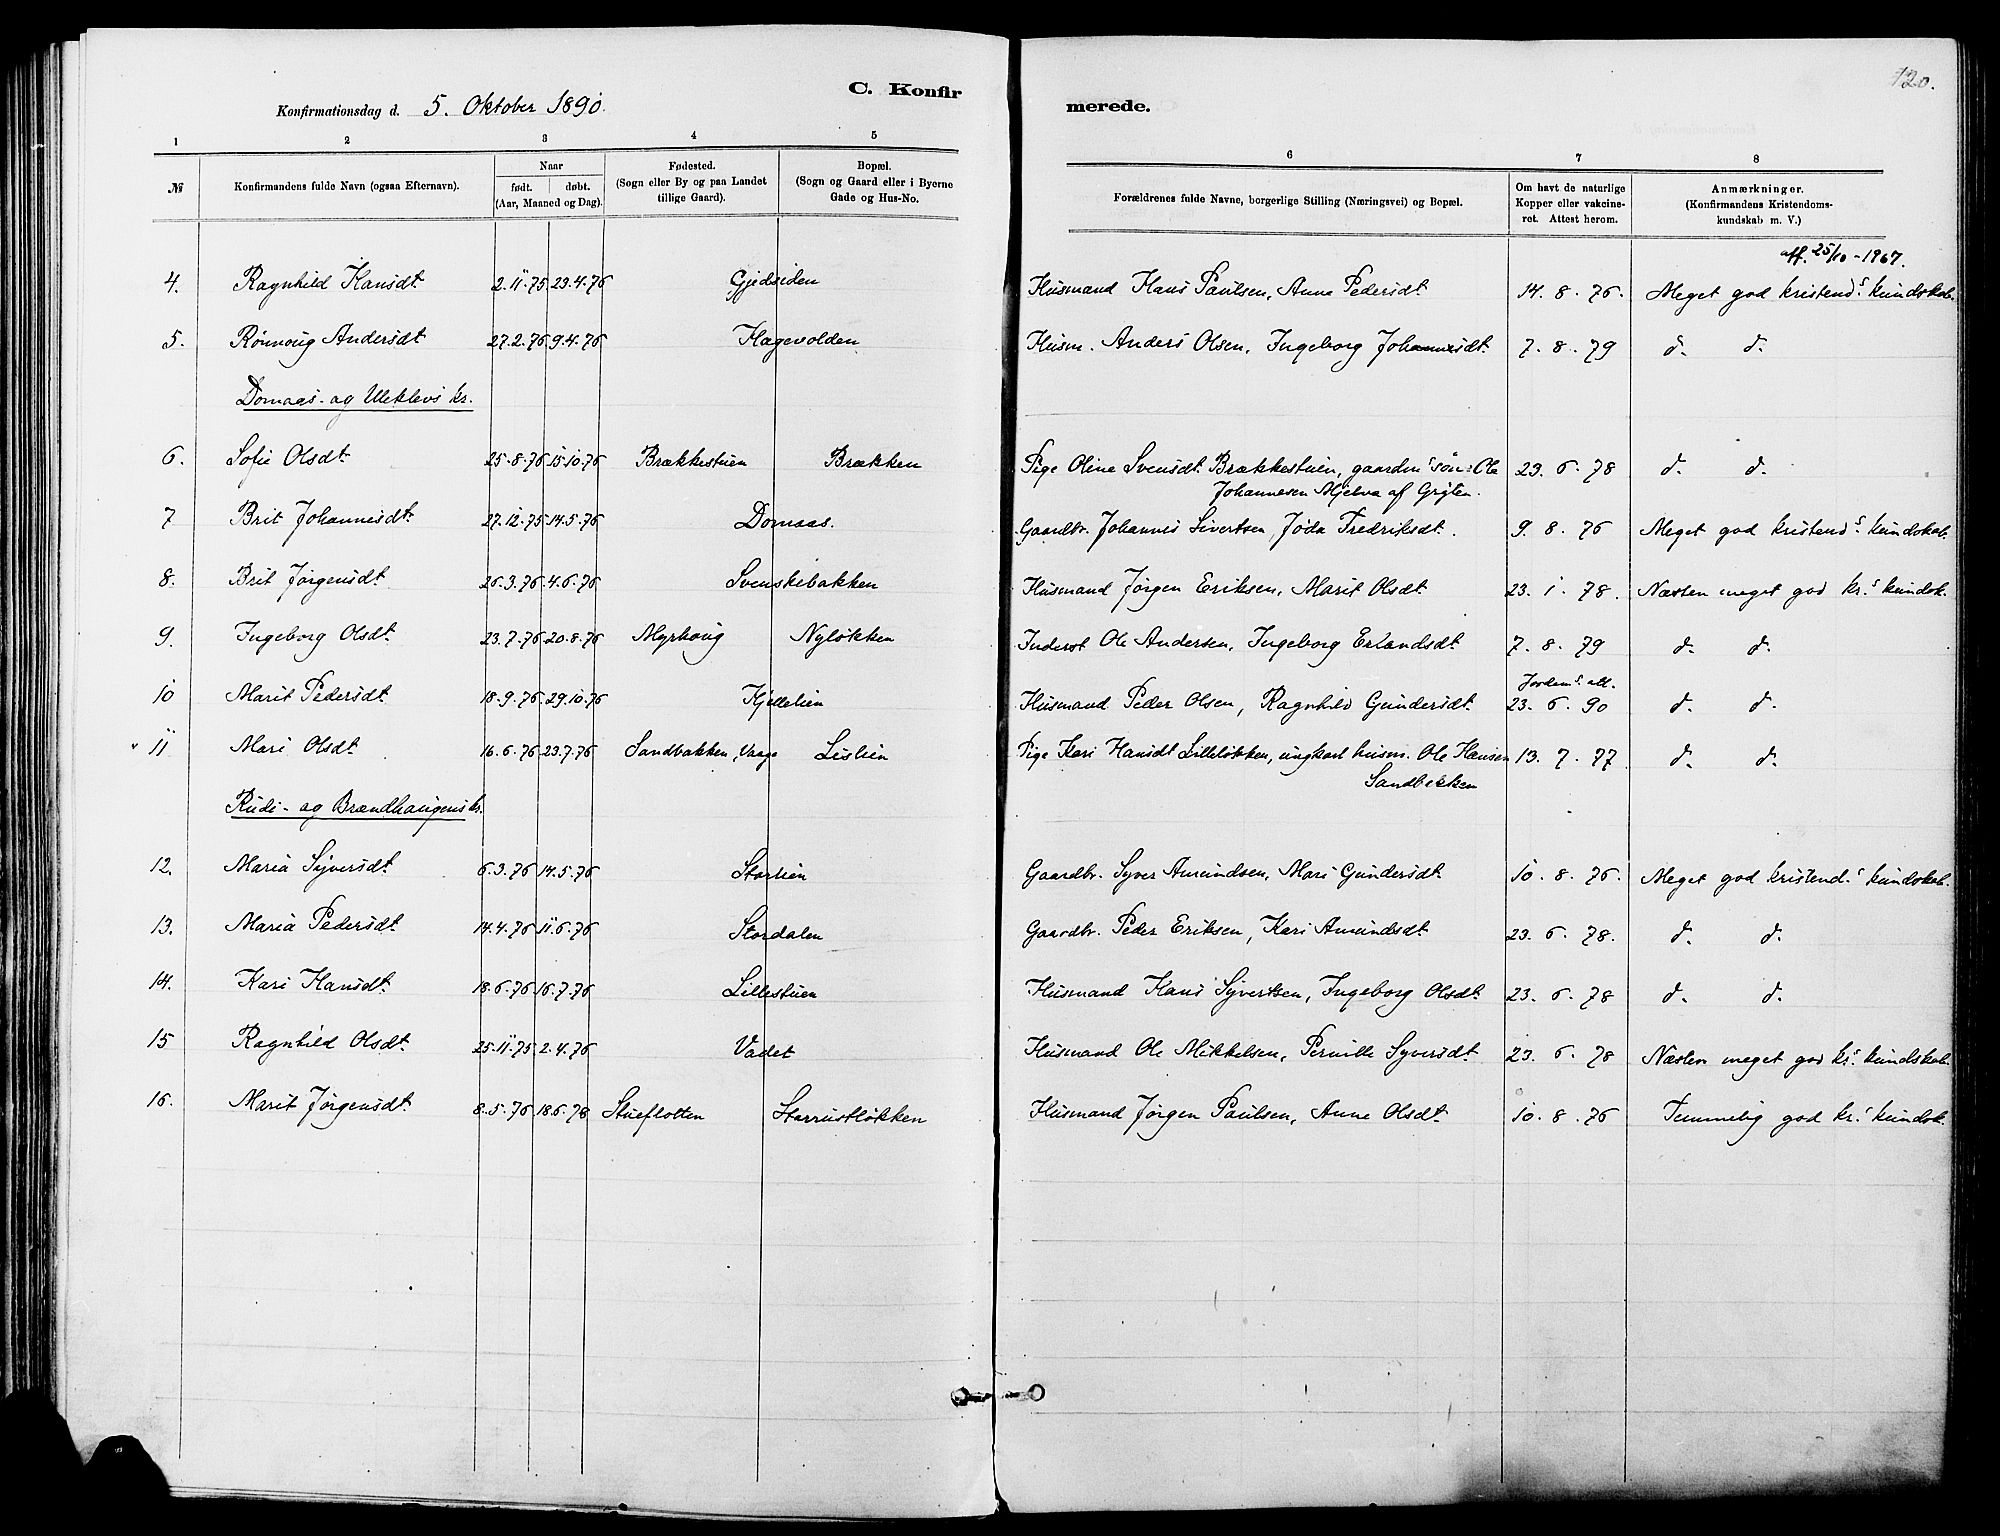 120.
C. Konfirmerede.
Konfirmationsdag d. 5. Oktober 1890.
1 2 3 4 5 6 7 8
№ Konfirmandens fulde Navn (ogsaa Efternavn). Naar født. døbt. (Aar, Maaned og Dag). Fødested. (Sogn eller By og paa Landet tillige Gaard). Bopæl. (Sogn og Gaard eller i Byerne Gade og Hus-No. Forældrenes fulde Navne, borgerlige Stilling (Næringsvei) og Bopæl. Om havt de naturlige Kopper eller vakcineret. Attest herom. Anmærkninger. (Konfirmandens Kristendomskundskab m. V.)
att. 25/10-1967.
4. Ragnhild Hansdt. 2.11.75 23.4.76 Gjedsiden Husmand Hans Paulsen, Anne Pedersdt. 14.8.76. Meget god kristend.s kundskab.
5. Rønnoug Andersdt. 27.2.76 9.4.76 Hagevolden Husm. Anders Olsen, Ingeborg Johannesdt. 7.8.79 d. d.
Domaas- og Uleklevs kr.
6. Sofie Olsdt. 25.8.76 15.10.76 Brækkestuen Brækken Pige Oline Svensdt. Brækkestuen, gaardm.s søn: Ole 23.6.78 d. d.
Johannesen Mjelva af Grytten.
7 Brit Johannesdt. 27.12.75 14.5.76 Domaas. Gaardbr. Johannes Sivertsen, Joda Fredriksdt. 9.8.76 Meget god kristend.s kundskab.
8. Brit Jørgensdt. 26.3.76 4.6.76 Svenskebakken Husmand Jørgen Eriksen, Marit Olsdt. 23.1.78. Næsten meget god kr.s kundsk.
9. Ingeborg Olsdt. 23.7.76 20.8.76 Myrhoug Nyløkken Inderst Ole Andersen, Ingeborg Erlandsdt. 7.8.79 d. d.
Jordem.s att.
10 Marit Pedersdt. 18.9.76 29.10.76 Kjellelien Husmand Peder Olsen, Ragnhild Gundersdt. 23.6.90 d. d.
11 Mari Olsdt. 16.6.76 23.7.76 Sandbakken, Vaage Lislien Pige Kari Hansdt Lilleløkken, ungkarl husm. Ole Hansen 13.7.77 d. d.
Sandbakken
Rudi- og Brændhaugens kr.
12. Maria Syversdt. 6.3.76 14.5.76 Storlien Gaardbr. Syver Amundsen, Mari Gundersdt. 10.8.76. Meget god kristend.s kundskab.
13. Maria Pedersdt. 14.4.76 11.6.76 Stordalen Gaardbr. Peder Eriksen, Kari Amundsdt. 23.6.78. d. d.
14. Kari Hansdt. 18.6.76 16.7.76 Lillestuen Husmand Hans Syvertsen, Ingeborg Olsdt. 23.6.78 d. d.
15 Ragnhild Olsdt. 25.11.75 2.4.76 Vadet Husmand Ole Mikkelsen, Pernille Syversdt. 23.6.78 Næsten meget god kr.s kundskab.
16. Marit Jørgensdt. 8.5.76 18.6.78 Stueflotten Storrustløkken Husmand Jørgen Paulsen, Anne Olsdt. 10.8.76 Temmelig god kr.s kundsk.